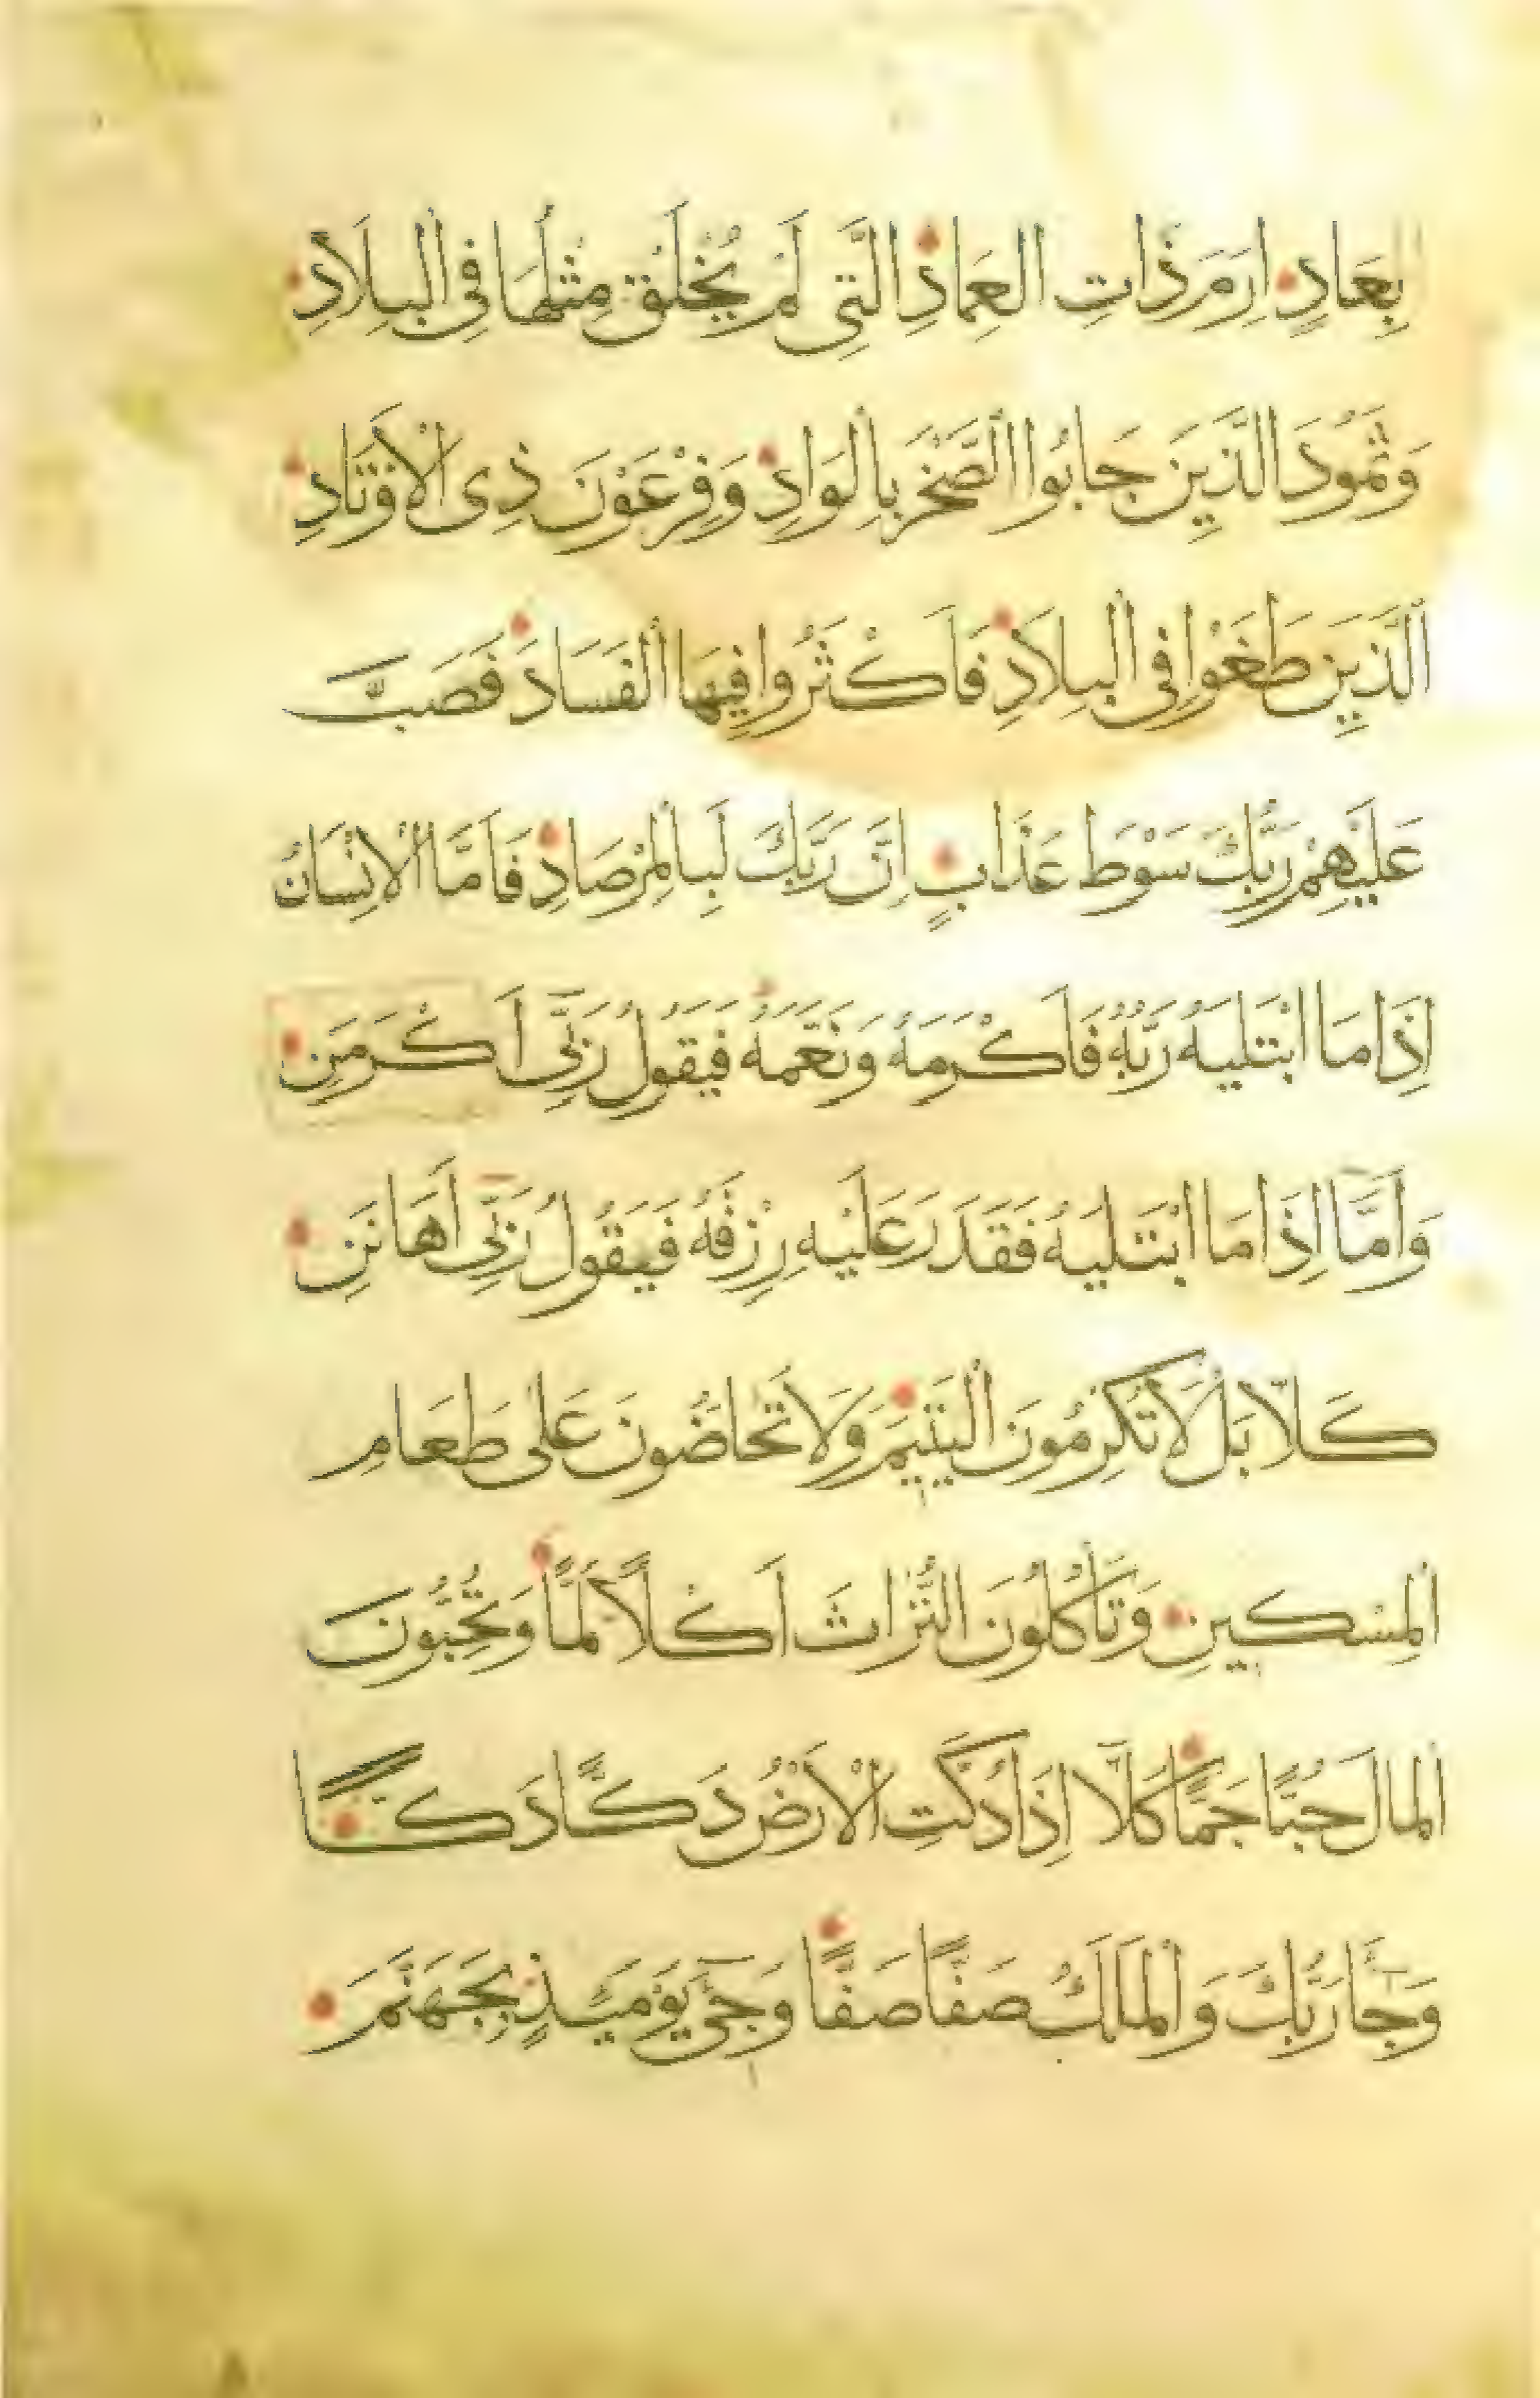 بِعَادٍ اِرَمَ ذَاتِ الْعِمَادِ الَّتِى لَمْ يُخْلَقْ مِثْلُهَا فِى الْبِلَادِ
وَثَمُودَ الَّذِينَ جَابُوا الصَّخْرَ بِالْوَادِ وَفِرْعَوْنَ ذِى الْاَوْتَادِ
الَّذِينَ طَغَوْا فِى الْبِلَادِ فَاَكْثَرُوا فِيهَا الْفَسَادَ فَصَبَّ
عَلَيْهِمْ رَبُّكَ سَوْطَ عَذَابٍ اِنَّ رَبَّكَ لَبِالْمِرْصَادِ فَاَمَّا الْاِنْسَانُ
اِذَا مَا ابْتَلَيهُ رَبُّهُ فَاَكْرَمَهُ وَنَعَّمَهُ فَيَقُولُ رَبِّى اَكْرَمَنِ
وَاَمَّا اِذَا مَا ابْتَلَيهُ فَقَدَرَ عَلَيْهِ رِزْقَهُ فَيَقُولُ رَبِّى اَهَانَنِ
كَلَّا بَلْ لَا تُكْرِمُونَ الْيَتِيمَ وَلَا تَحَاضُّونَ عَلَى طَعَامِ
الْمِسْكِينِ وَتَأْكُلُونَ التُّرَاثَ اَكْلًا لَمًّا وَتُحِبُّونَ
الْمَالَ حُبًّا جَمًّا كَلَّا اِذَا دُكَّتِ الْاَرْضُ دَكًّا دَكًّا
وَجَاءَ رَبُّكَ وَالْمَلَكُ صَفًّا صَفًّا وَجِىءَ يَوْمَئِذٍ بِجَهَنَّمَ